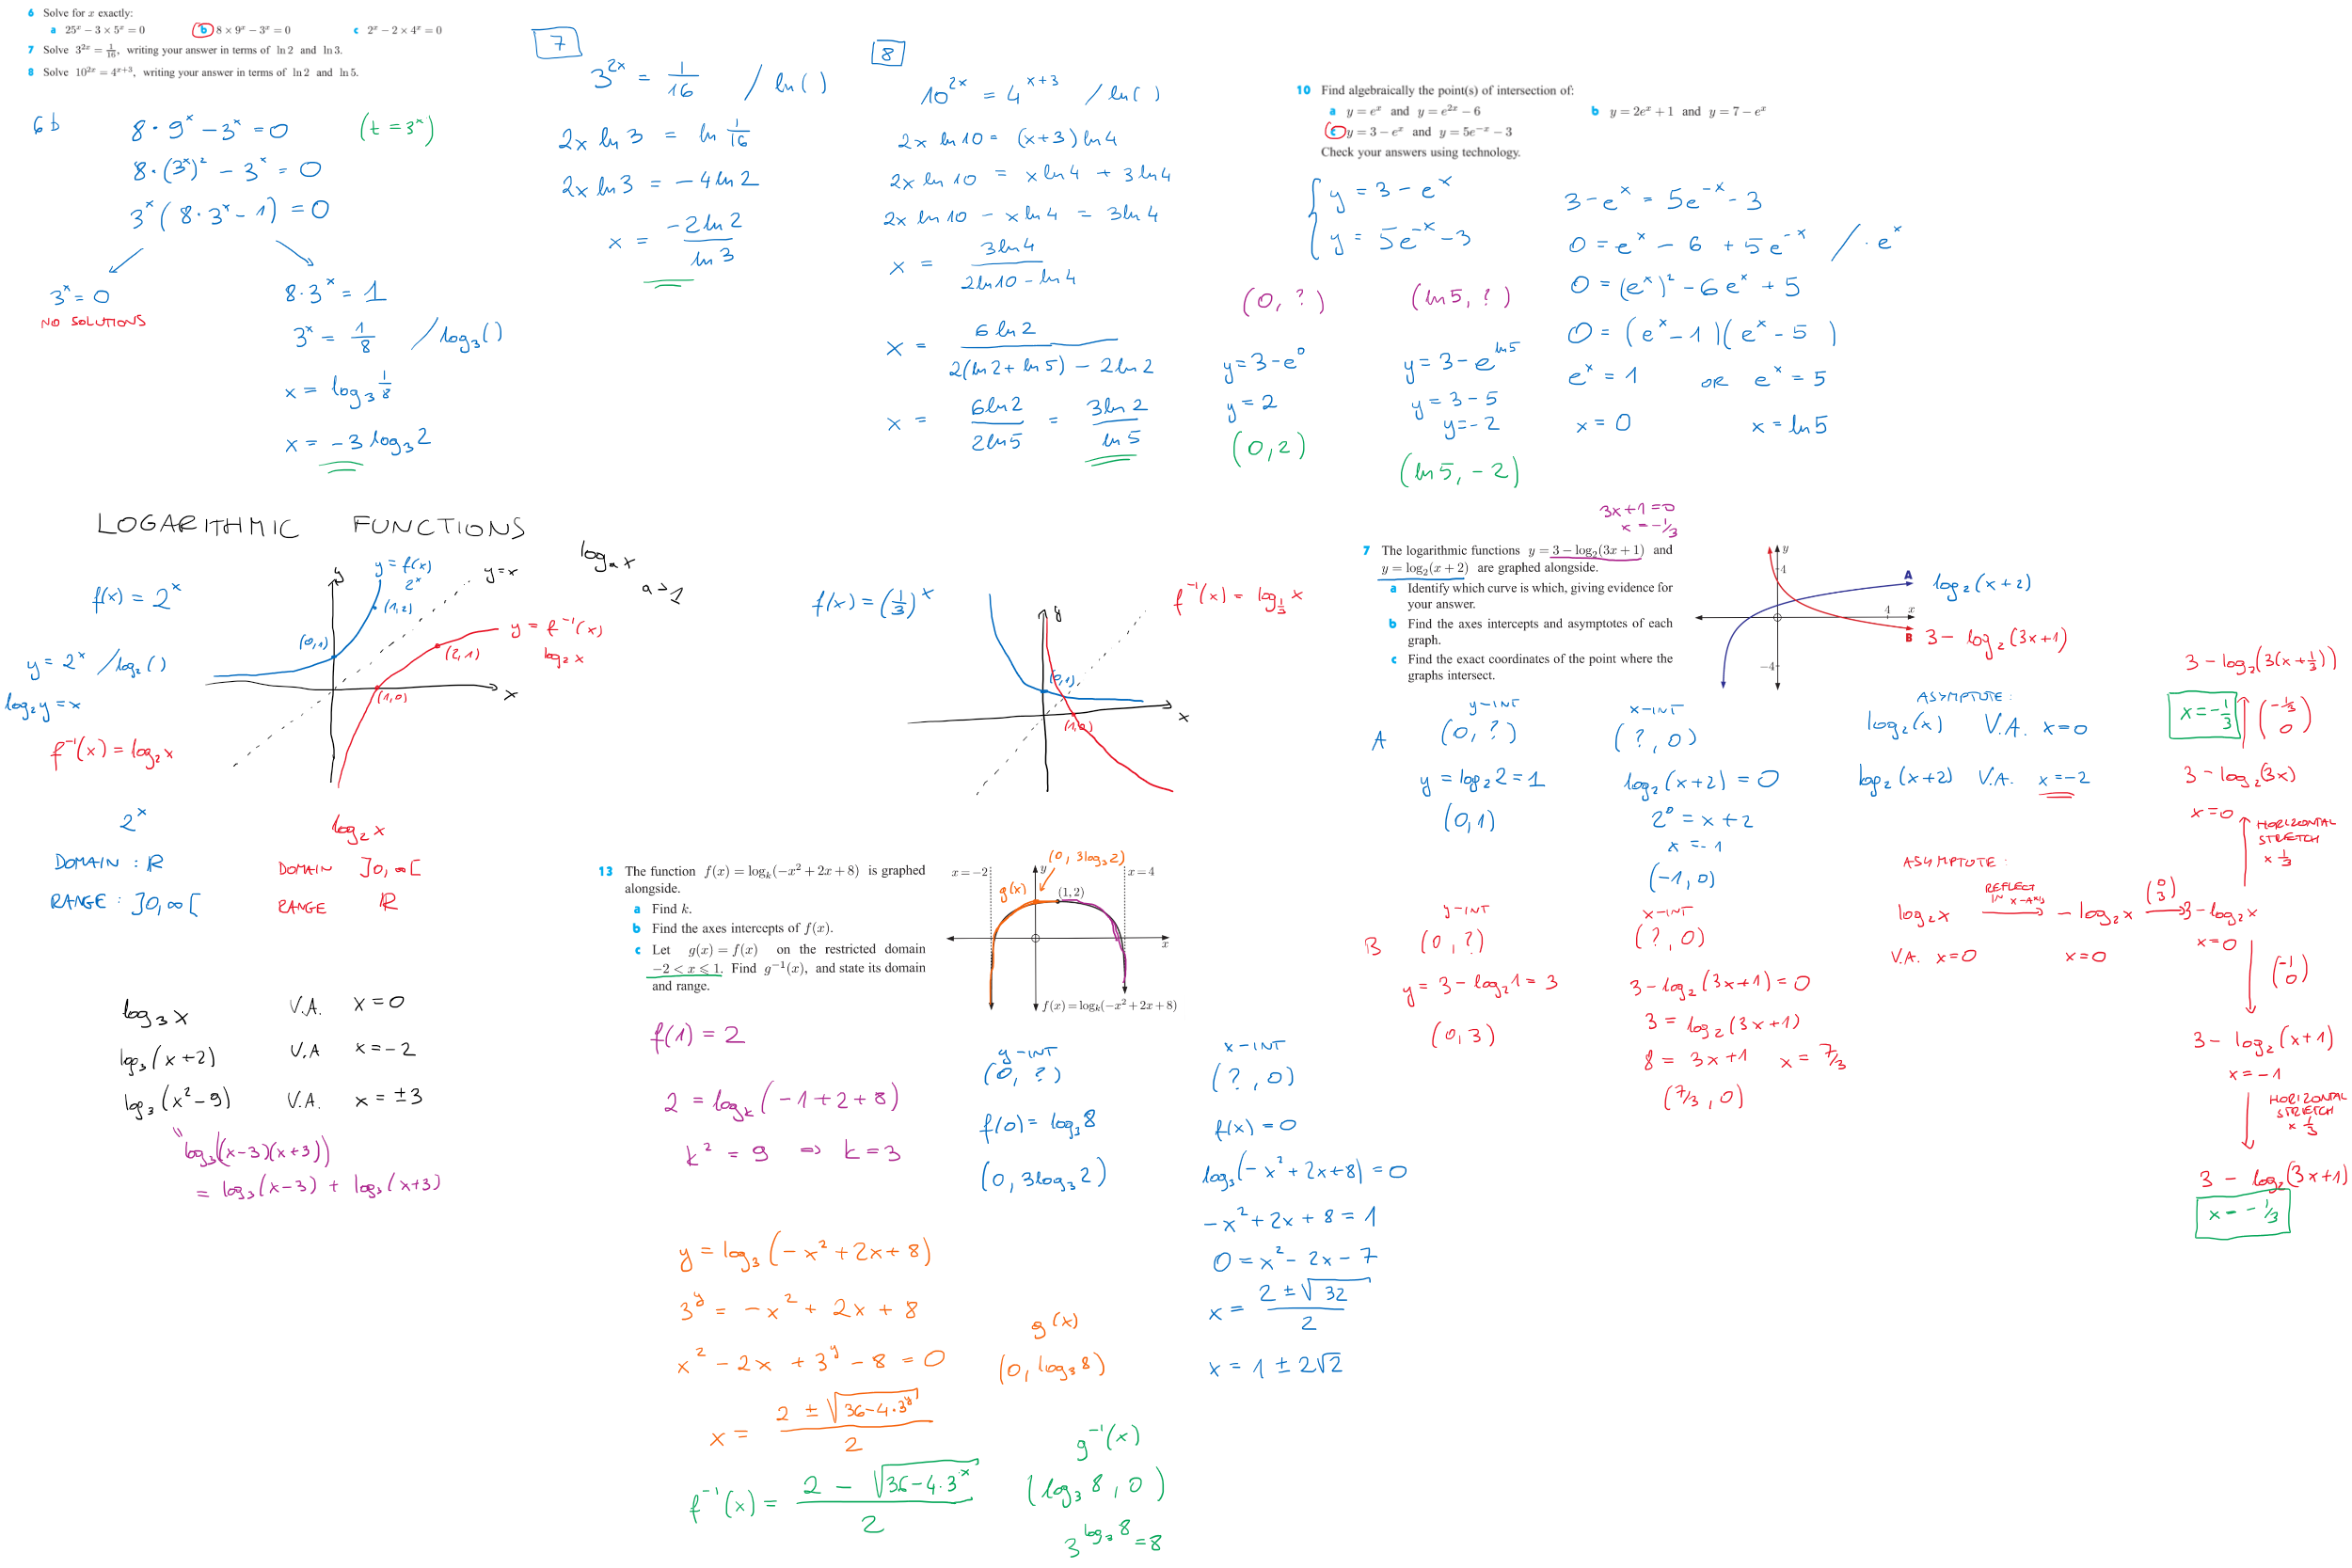 6 Solve for x exactly:
a 25^x − 3 × 5^x = 0 b 8 × 9^x − 3^x = 0 c 2^x − 2 × 4^x = 0
7 Solve 3^{2x} = 1/16, writing your answer in terms of ln 2 and ln 3.
8 Solve 10^{2x} = 4^{x+3}, writing your answer in terms of ln 2 and ln 5.
6b
8 · 9^x − 3^x = 0 (t = 3^x)
8 · (3^x)² − 3^x = 0
3^x (8 · 3^x − 1) = 0
3^x = 0
NO SOLUTIONS
8 · 3^x = 1
3^x = 1/8 / log₃( )
x = log₃ 1/8
x = −3 log₃ 2
7
3^{2x} = 1/16 / ln( )
2x ln 3 = ln 1/16
2x ln 3 = −4 ln 2
x = −2 ln 2 / ln 3
8
10^{2x} = 4^{x+3} / ln( )
2x ln 10 = (x+3) ln 4
2x ln 10 = x ln 4 + 3 ln 4
2x ln 10 − x ln 4 = 3 ln 4
x = 3 ln 4 / 2 ln 10 − ln 4
x = 6 ln 2 / 2(ln 2 + ln 5) − 2 ln 2
x = 6 ln 2 / 2 ln 5 = 3 ln 2 / ln 5
10 Find algebraically the point(s) of intersection of:
a y = e^x and y = e^{2x} − 6 b y = 2e^x + 1 and y = 7 − e^x
c y = 3 − e^x and y = 5e^{−x} − 3
Check your answers using technology.
y = 3 − e^x
y = 5e^{−x} − 3
3 − e^x = 5e^{−x} − 3
0 = e^x − 6 + 5e^{−x} / · e^x
0 = (e^x)² − 6e^x + 5
0 = (e^x − 1)(e^x − 5)
e^x = 1 OR e^x = 5
x = 0 x = ln 5
(0, ?)
y = 3 − e⁰
y = 2
(0, 2)
(ln 5, ?)
y = 3 − e^{ln 5}
y = 3 − 5
y = −2
(ln 5, −2)
LOGARITHMIC FUNCTIONS
f(x) = 2^x
y = 2^x / log₂( )
log₂ y = x
f⁻¹(x) = log₂ x
y
y = f(x)
2^x
y = x
(1, 2)
(0, 1)
y = f⁻¹(x)
log₂ x
(2, 1)
(1, 0)
x
log_a x
a > 1
2^x
DOMAIN : ℝ
RANGE : ]0, ∞[
log₂ x
DOMAIN ]0, ∞[
RANGE ℝ
f(x) = (1/3)^x
f⁻¹(x) = log_{1/3} x
y
(0, 1)
(1, 0)
x
log₃ x V.A. x = 0
log₃ (x+2) V.A x = −2
log₃ (x² − 9) V.A. x = ±3
"
log₃ ((x−3)(x+3))
= log₃ (x−3) + log₃ (x+3)
13 The function f(x) = log_k(−x² + 2x + 8) is graphed
alongside.
a Find k.
b Find the axes intercepts of f(x).
c Let g(x) = f(x) on the restricted domain
−2 < x ⩽ 1. Find g⁻¹(x), and state its domain
and range.
(0, 3 log₃ 2)
x = −2
y
x = 4
g(x)
(1, 2)
x
f(x) = log_k(−x² + 2x + 8)
f(1) = 2
2 = log_k (−1 + 2 + 8)
k² = 9 ⇒ k = 3
y-INT
(0, ?)
f(0) = log₃ 8
(0, 3 log₃ 2)
x-INT
(?, 0)
f(x) = 0
log₃ (−x² + 2x + 8) = 0
−x² + 2x + 8 = 1
0 = x² − 2x − 7
x = 2 ± √32 / 2
x = 1 ± 2√2
y = log₃ (−x² + 2x + 8)
3^y = −x² + 2x + 8
x² − 2x + 3^y − 8 = 0
x = 2 ± √(36 − 4 · 3^y) / 2
f⁻¹(x) = 2 − √(36 − 4 · 3^x) / 2
g(x)
(0, log₃ 8)
g⁻¹(x)
(log₃ 8, 0)
3^{log₃ 8} = 8
3x + 1 = 0
x = −1/3
7 The logarithmic functions y = 3 − log₂(3x + 1) and
y = log₂(x + 2) are graphed alongside.
a Identify which curve is which, giving evidence for
your answer.
b Find the axes intercepts and asymptotes of each
graph.
c Find the exact coordinates of the point where the
graphs intersect.
y
4
A
4
x
B
−4
log₂ (x+2)
3 − log₂ (3x+1)
A
y-INT
(0, ?)
y = log₂ 2 = 1
(0, 1)
x-INT
(?, 0)
log₂ (x+2) = 0
2⁰ = x + 2
x = −1
(−1, 0)
ASYMPTOTE :
log₂ (x) V.A. x = 0
log₂ (x+2) V.A. x = −2
B
y-INT
(0, ?)
y = 3 − log₂ 1 = 3
(0, 3)
x-INT
(?, 0)
3 − log₂ (3x+1) = 0
3 = log₂ (3x+1)
8 = 3x+1 x = 7/3
(7/3, 0)
ASYMPTOTE :
log₂ x REFLECT IN x-AXIS → − log₂ x (0 3) → 3 − log₂ x
V.A. x = 0 x = 0 x = 0
3 − log₂ (3(x + 1/3))
x = −1/3
(−1/3 0)
3 − log₂ (3x)
x = 0
HORIZONTAL
STRETCH
× 1/3
(−1 0)
3 − log₂ (x+1)
x = −1
HORIZONTAL
STRETCH
× 1/3
3 − log₂ (3x+1)
x = −1/3